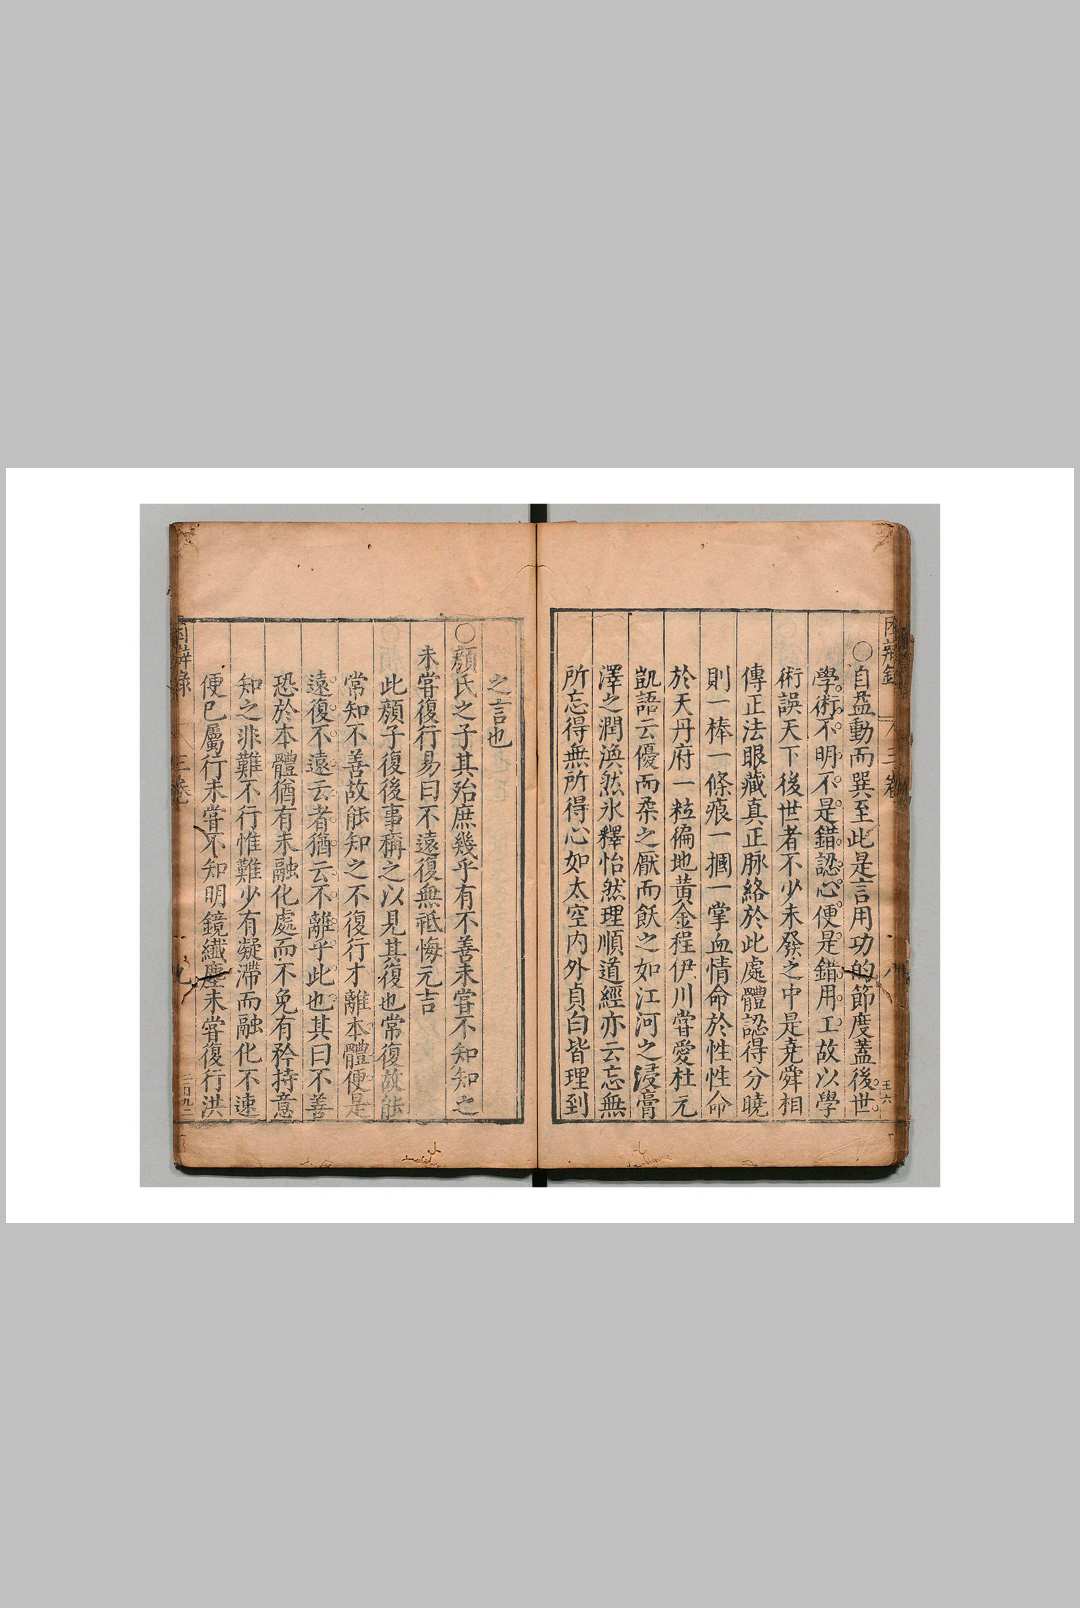 〇自益動而巽至此是言用功的節度蓋後世
學術不明不是錯認心便是錯用工故以學
術誤天下後世者不少未發之中是堯舜相
傳正法眼藏真正脉絡於此處體認得分曉
則一棒一條痕一摑一掌血情命於性性命
於天丹府一粒徧地黃金程伊川嘗愛杜元
凱語云優而柔之厭而飫之如江河之浸膏
澤之潤渙然氷釋怡然理順道經亦云忘無
所忘得無所得心如太空内外貞白皆理到
之言也
〇顏氏之子其殆庶幾乎有不善未嘗不知知之
未嘗復行易曰不遠復無祗悔元吉
此顏子復後事稱之以見其復也常復故能
常知不善故能知之不復行才離本體便是
遠復不遠云者猶云不離乎此也其曰不善
恐於本體猶有未融化處而不免有矜持意
知之非難不行惟難少有凝滯而融化不速
便已屬行未嘗不知明鏡纖塵未嘗復行洪
三卷